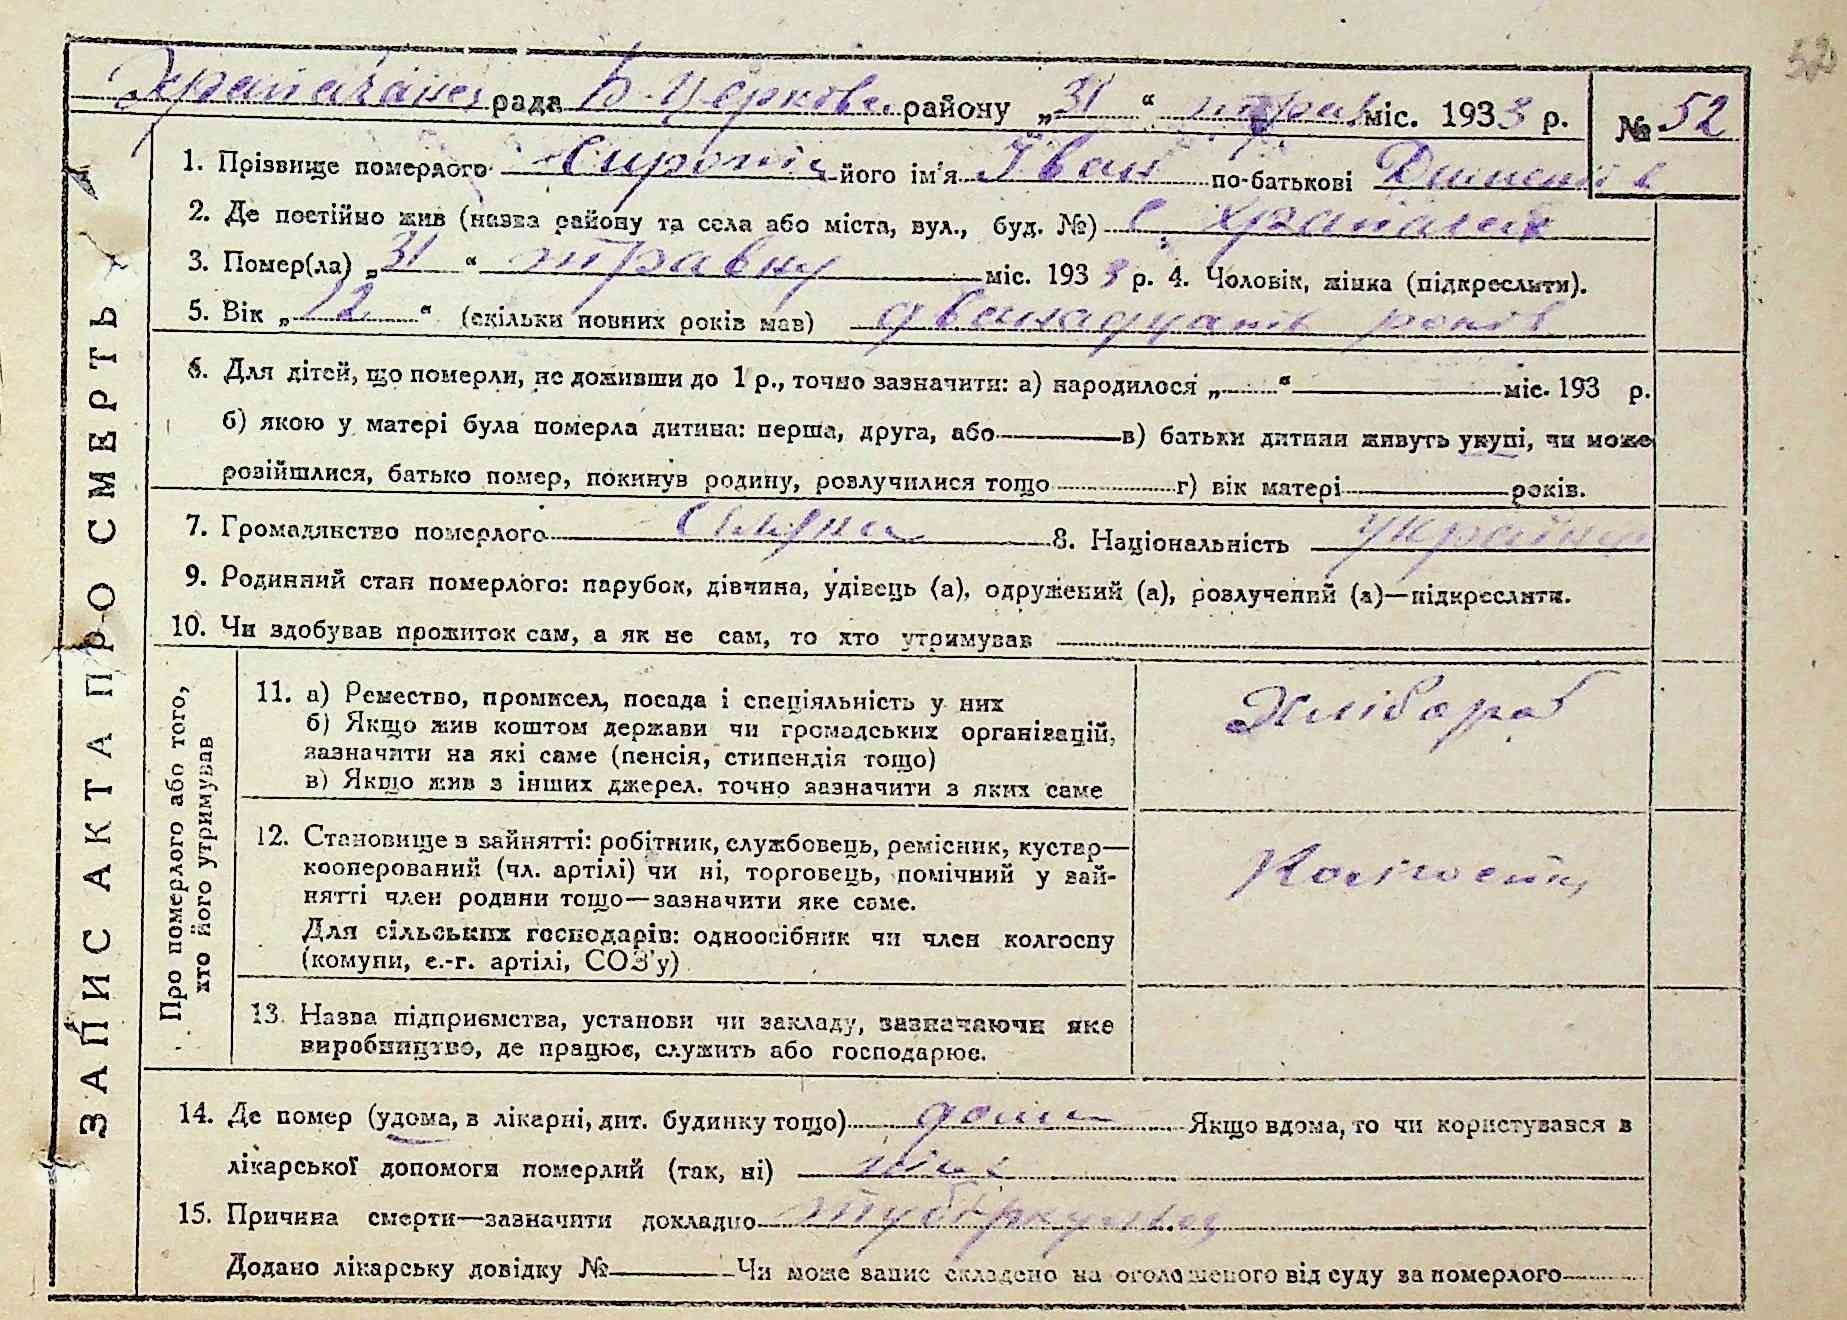 52
рада Б-Церкови району „31“ трав міс. 1933 р. № 52
1. Прізвище померлого його ім'я Іван по-батькові
2. Де постійно жив (назва району та села або міста, вул., буд. №) с.
3. Помер(ла) „31“ травну міс. 1933 р. 4. Чоловік, жінка (підкреслити).
5. Вік „12“ (скільки повних років мав) дванадцать років
6. Для дітей, що померли, не доживши до 1 р., точно зазначити: а) народилося „ “ міс. 193 р.
б) якою у матері була померла дитина: перша, друга, або в) батьки дитини живуть укупі, чи може
розійшлися, батько помер, покинув родину, розлучилися тощо г) вік матері років.
7. Громадянство померлого 8. Національність
9. Родинний стан померлого: парубок, дівчина, удівець (а), одружений (а), розлучений (а)—підкреслити.
10. Чи здобував прожиток сам, а як не сам, то хто утримував
ЗАПИС АКТА ПРО СМЕРТЬ
Про померлого або того,
хто його утримував
11. а) Ремество, промисел, посада і спеціяльність у них
б) Якщо жив коштом держави чи громадських організацій,
зазначити на які саме (пенсія, стипендія тощо)
в) Якщо жив з інших джерел. точно зазначити з яких саме
Хлібороб
12. Становище в зайнятті: робітник, службовець, ремісник, кустар—
кооперований (чл. артілі) чи ні, торговець, помічний у зай-
нятті член родини тощо—зазначити яке саме.
Для сільських господарів: одноосібник чи член колгоспу
(комуни, с.-г. артілі, СОЗ'у)
13. Назва підприємства, установи чи закладу, зазначаючи яке
виробництво, де працює, служить або господарює.
14. Де помер (удома, в лікарні, дит. будинку тощо) дома Якщо вдома, то чи користувався в
лікарської допомоги померлий (так, ні)
15. Причина смерти—зазначити докладно
Додано лікарську довідку № Чи може запис складено на оголошеного від суду за померлого